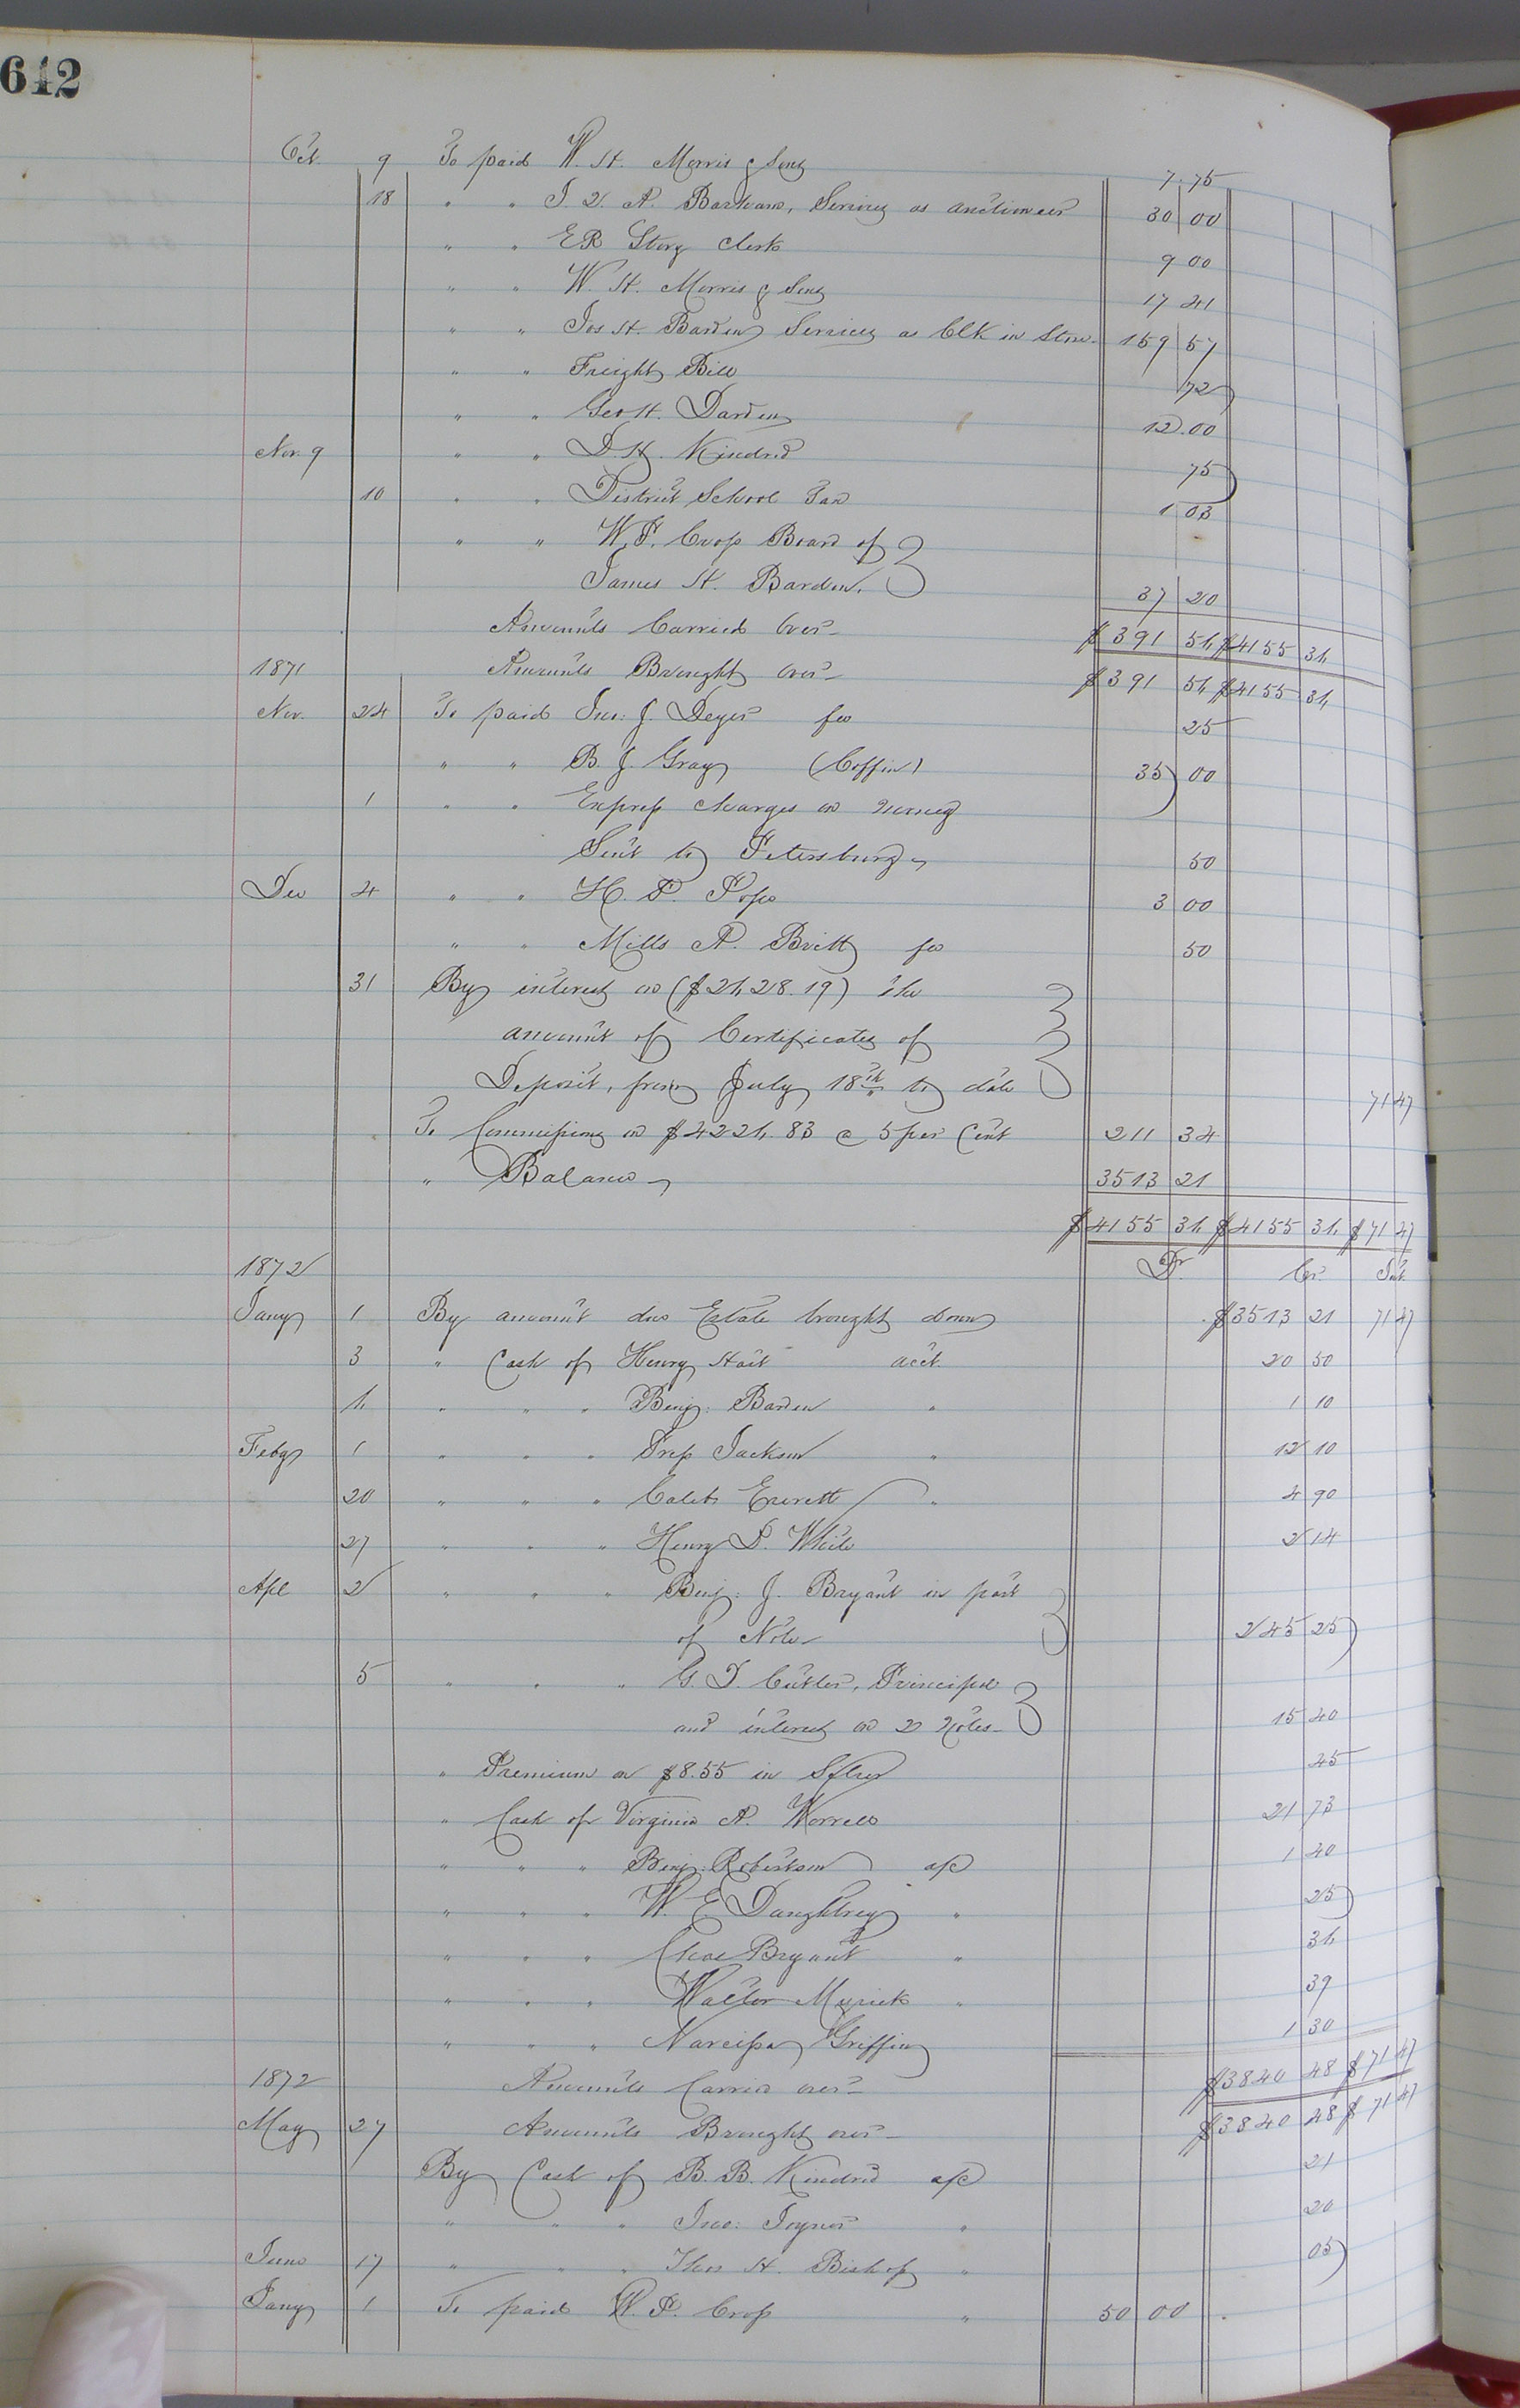 642
Oct. 9 To paid W. H. Morris & Sons 7.75
18 " " J. Q. A. Barham, Services as auctioneer 30 00
" " E R Story Clerk 9 00
" " W. H. Morris & Sons 17 41
" " Jos H. Barden Services as Clk in Store 159 57
" " Freight Bill 72
" " Geo H. Darden 12.00
Nov. 9 " " D. H. Kindred 75
10 " " District School Tax 1 03
" " W. P. Crop Board of
James H. Barden. 37 20
Amounts Carried Over $391 56 $4155 36
1871 Amounts Brought over $391 56 $4155 36
Nov. 24 To paid Jno. J. Deyer fee 25
" " B. J. Gray (Coffin) 35 00
1 " " Express charges on money
Sent to Petersburg 50
Dec 4 " " H. P. Pope 3 00
" " Mills A. Britt fee 50
31 By interest on ($2628.19) the
amount of Certificates of
Deposit, from July 18th to date 71 47
To Commissions on $4226.83 @ 5 per Cent 211 34
" Balance 3513 21
$4155 36 $4155 36 $71 47
1872 Dr. Cr. Int
Jany 1 By amount due Estate brought down $3513 21 71 47
3 " Cash of Henry Hart acct. 20 50
6 " " " Benj. Barden " 1 10
Feby 1 " " " Prep Jackson " 12 10
20 " " " Caleb Everett " 4 90
27 " " " Henry D. White 2 14
Apl 2 " " " Benj. J. Bryant in part
of Note 245 25
5 " " " G. D. Cutler, Principal
and interest on 2 Notes 15 40
" Premium on $8.55 in Silver 45
" Cash of Virginia A. Worrell 21 73
" " " Benj. Robertson a/c 1 40
" " " W. E. Daughtrey " 25
" " " Chas Bryant " 36
" " " Walter Myrick " 39
" " " Narcissa Griffin 1 30
1872 Amounts Carried over $3840 48 $71 47
May 27 Amounts Brought over $3840 48 $71 47
By Cash of B. B. Kindred a/c 21
" " " Jno. Joyner " 20
June 17 " " " Thos H. Bishop " 05
Jany 1 To paid W. P. Crop " 50 00